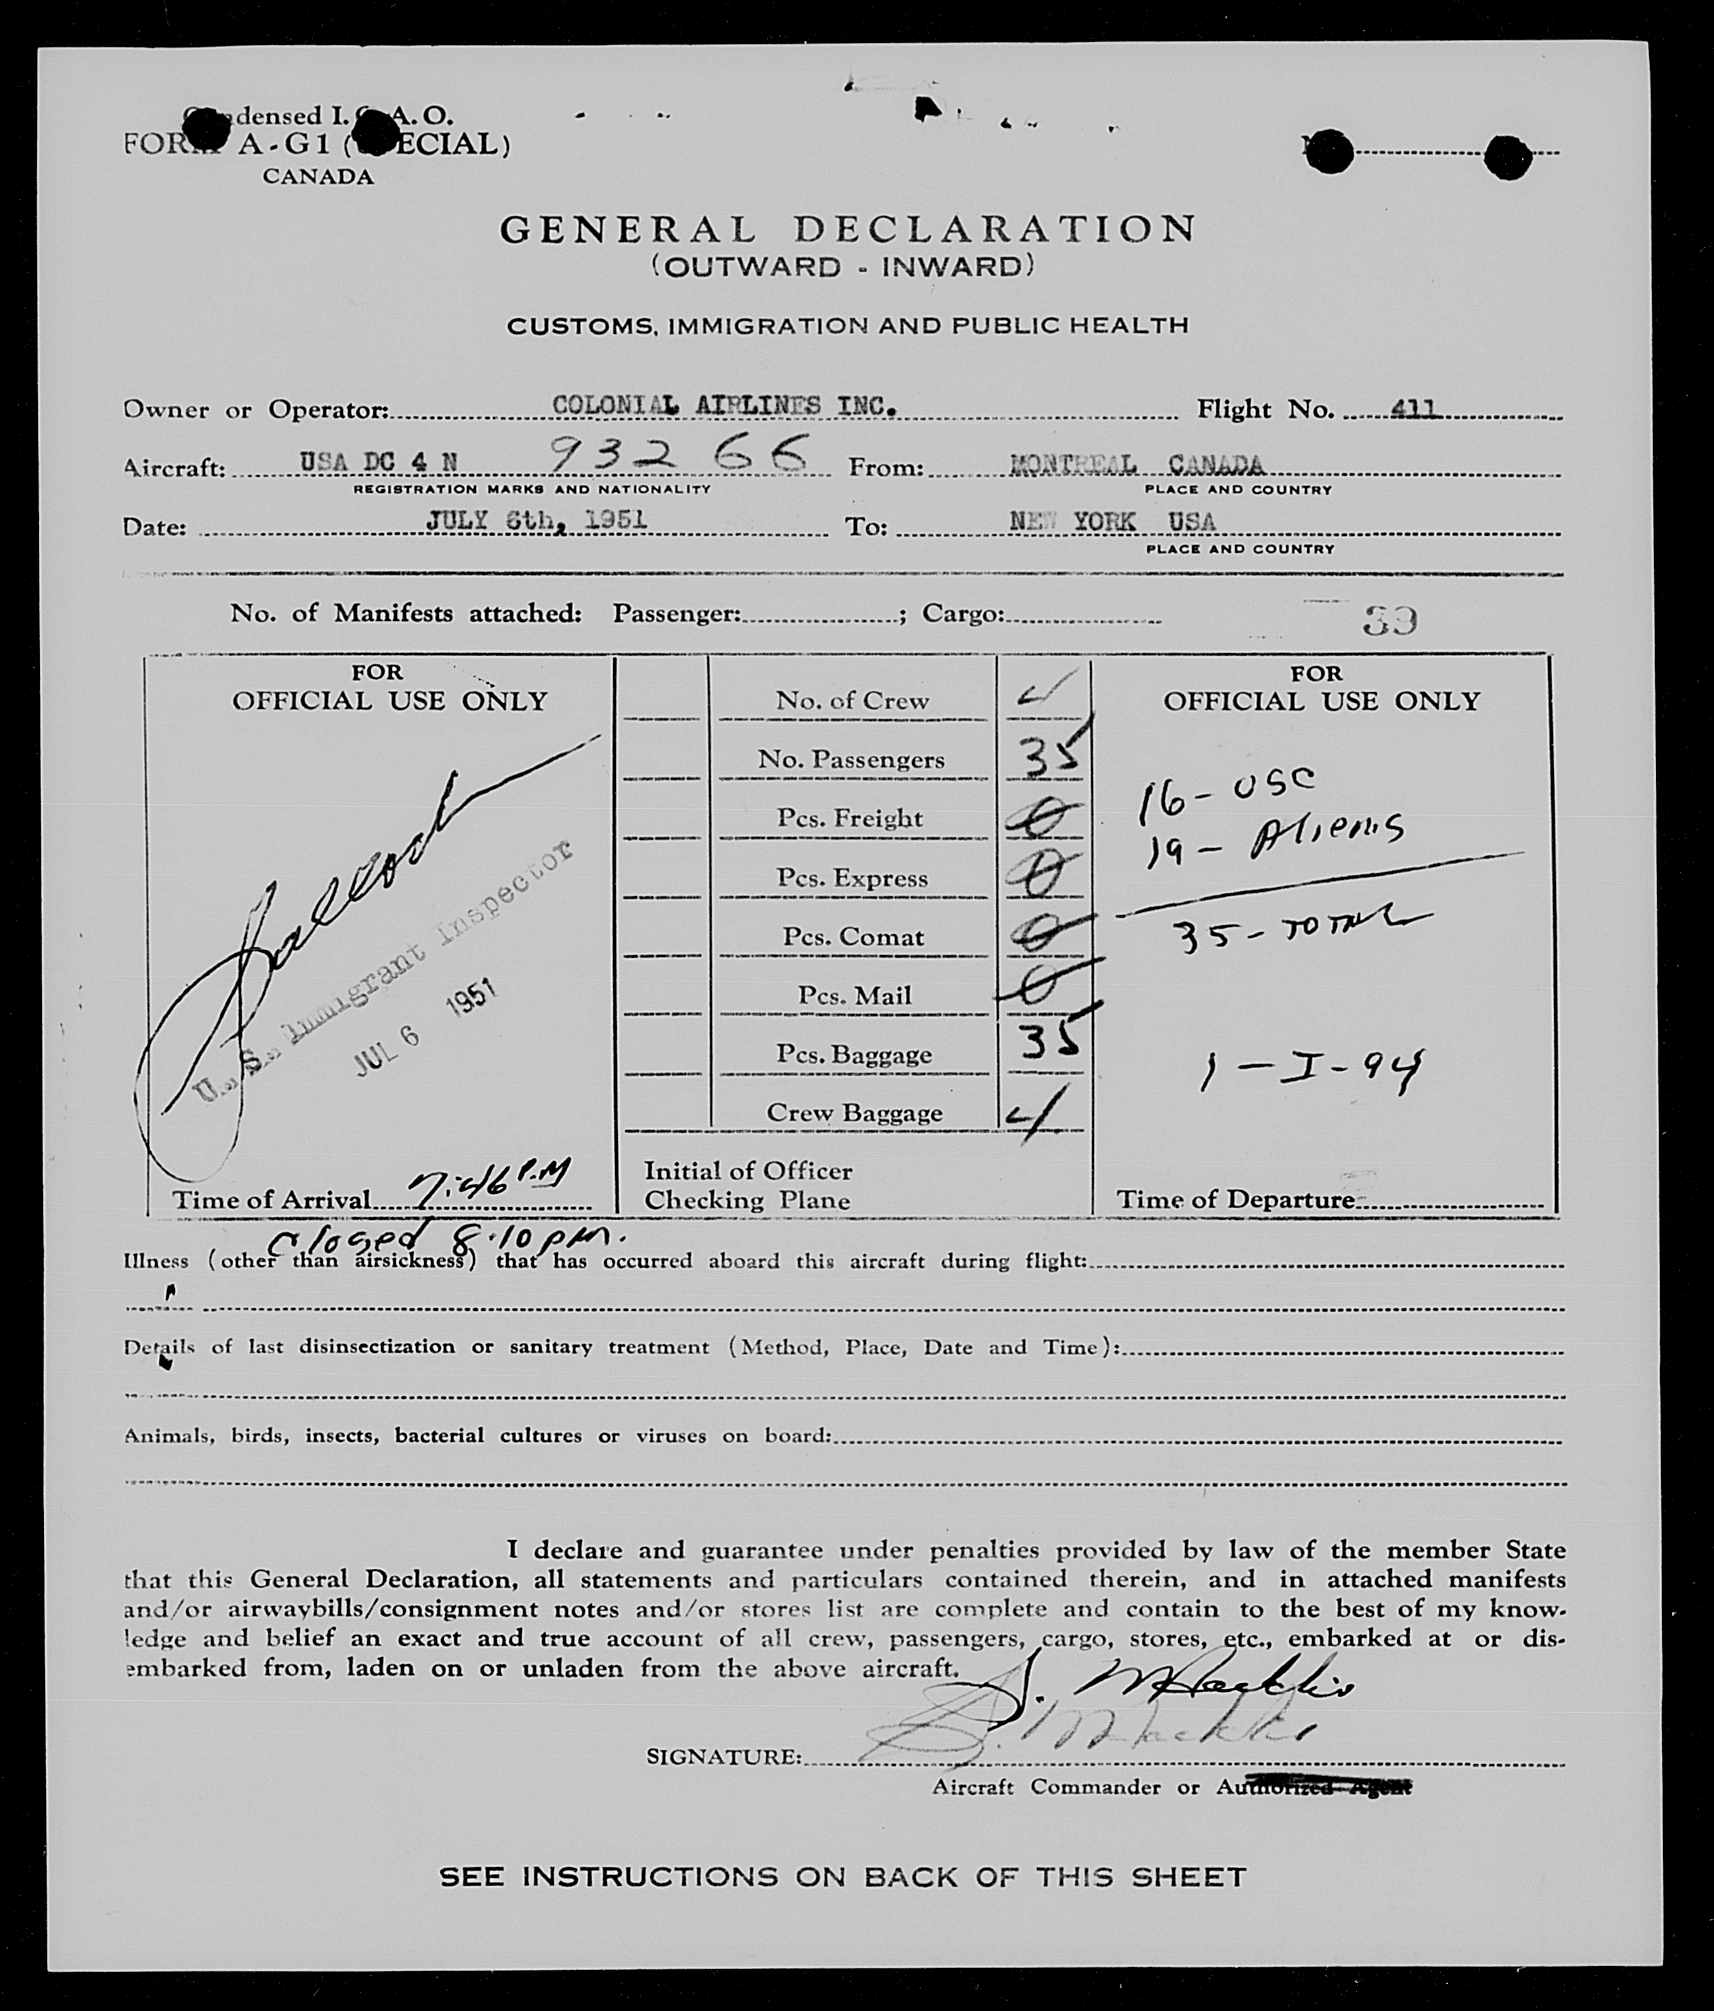 Condensed I.C.A.O.
FORM A-G1 (SPECIAL)
CANADA
GENERAL DECLARATION
(OUTWARD - INWARD)
CUSTOMS, IMMIGRATION AND PUBLIC HEALTH
Owner or Operator: COLONIAL AIRLINES INC. Flight No. 411
Aircraft: USA DC 4 N 93266 From: MONTREAL CANADA
REGISTRATION MARKS AND NATIONALITY PLACE AND COUNTRY
Date: JULY 6th, 1951 To: NEW YORK USA
PLACE AND COUNTRY
No. of Manifests attached: Passenger: ; Cargo: 39
FOR
OFFICIAL USE ONLY
U. S. Immigrant Inspector
JUL 6 1951
Time of Arrival 7:46 P.M
closed 8:10 pm.
No. of Crew 4
No. Passengers 35
Pcs. Freight 0
Pcs. Express 0
Pcs. Comat 0
Pcs. Mail 0
Pcs. Baggage 35
Crew Baggage 4
Initial of Officer
Checking Plane
FOR
OFFICIAL USE ONLY
16 - USC
19 - Aliens
35 - TOTAL
1 - I-94
Time of Departure
Illness (other than airsickness) that has occurred aboard this aircraft during flight:
Details of last disinsectization or sanitary treatment (Method, Place, Date and Time):
Animals, birds, insects, bacterial cultures or viruses on board:
I declare and guarantee under penalties provided by law of the member State
that this General Declaration, all statements and particulars contained therein, and in attached manifests
and/or airwaybills/consignment notes and/or stores list are complete and contain to the best of my know-
ledge and belief an exact and true account of all crew, passengers, cargo, stores, etc., embarked at or dis-
embarked from, laden on or unladen from the above aircraft.
SIGNATURE:
Aircraft Commander or Authorized Agent
SEE INSTRUCTIONS ON BACK OF THIS SHEET